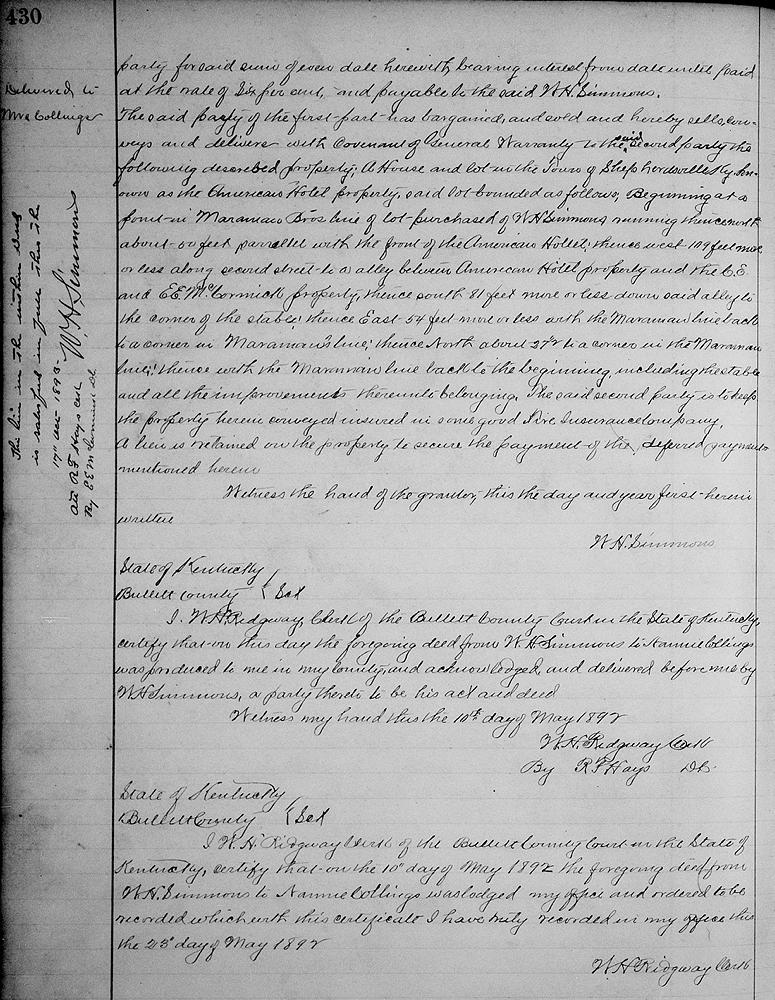 430
Delivered to
Mrs Collings
party for said sum of even date herewith, bearing interest from date until paid
at the rate of Six per cent, and payable to the said W.H. Simmons.
The said party of the first part has bargained, and sold and hereby sells, con-
veys and delivers with Covenant of General Warranty to the said second party the
following described property; A House and lot in the Town of Shepherdsville Ky. kn-
own as the American Hotel property, said lot bounded as follows; Beginning at a
point in Maraman Bros line of lot purchased of W.H. Simmons running thence north
about 50 feet parallel with the front of the American Hotel; thence west 109 feet more
or less along second street to a alley between American Hotel property and the C.E.
and E.E. McCormick property, thence south 81 feet more or less down said alley to
the corner of the stable; thence East 54 feet more or less with the Maraman line back
to a corner in Maraman's line; thence North about 27 to a corner in the Maraman
line; thence with the Maraman line back to the beginning, including the stable
and all the improvements thereunto belonging. The said second party is to keep
the property herein conveyed insured in some good Fire Insurance Company.
A lien is retained on the property to secure the payment of the deferred payments
mentioned herein
Witness the hand of the grantor, this the day and year first herein
written
W.H. Simmons
The lien in the within deed
is satisfied in full this the
17" 1893.
W H Simmons
Att R F Hays Clk
By E E M
State of Kentucky
Bullitt County } Sct
I. W.H. Ridgway, Clerk of the Bullitt County Court in the State of Kentucky,
certify that on this day the foregoing deed from W.H. Simmons to Nannie Collings
was produced to me in my county, and acknowledged, and delivered before me by
W.H. Simmons, a party thereto to be his act and deed
Witness my hand this the 10th day of May 1892
W.H. Ridgway Clerk
By R F Hays DC.
State of Kentucky
Bullitt County } Sct
I W.H. Ridgway Clerk of the Bullitt County Court in the State of
Kentucky, certify that on the 10" day of May 1892 the foregoing deed from
W.H. Simmons to Nannie Collings was lodged my office and ordered to be
recorded which with this certificate I have truly recorded in my office this
the 23d day of May 1892
W H Ridgway Clerk